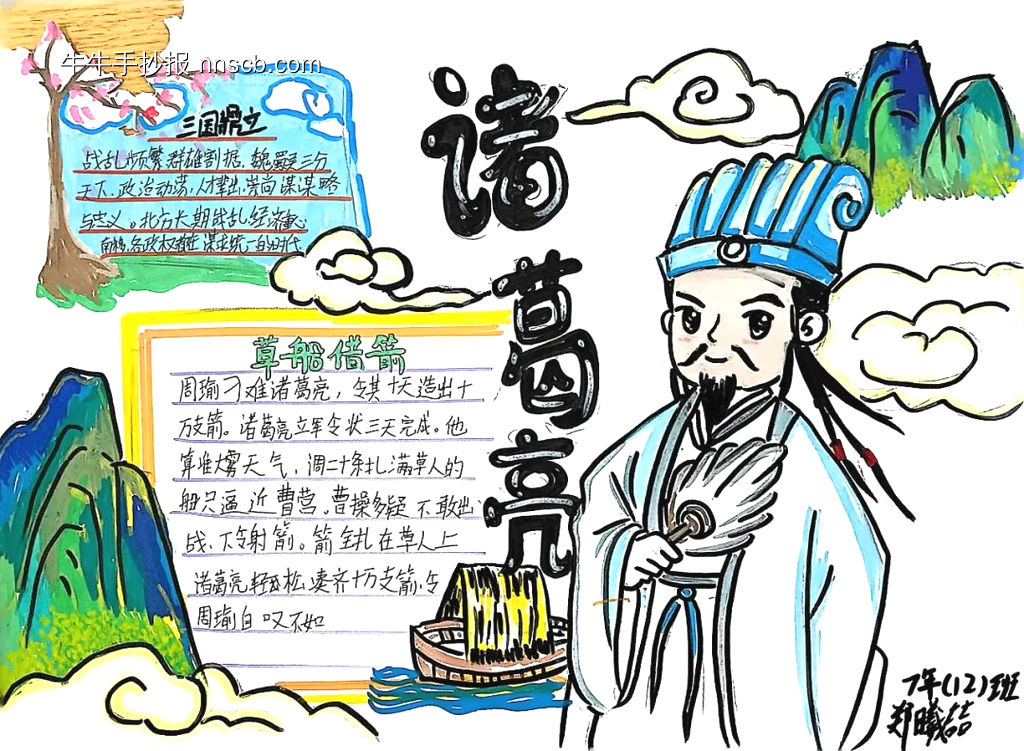 牛牛手抄报 nnscb.com
三国鼎立
战乱频繁群雄割据.魏蜀吴三分
天下、政治动荡,人才辈出,崇尚谋谋略
与忠义。北方长期战乱经济重心
南移,各政权谋求统一的时代
诸葛亮
草船借箭
周瑜刁难诸葛亮,令其十天造出十
万支箭。诸葛亮立军令状三天完成。他
算准大雾天气,调二十条扎满草人的
船只逼近曹营。曹操多疑不敢出
战、下令射箭。箭全扎在草人上
诸葛亮轻松凑齐十万支箭,令
周瑜自叹不如
7年(12)班
郑曦喆